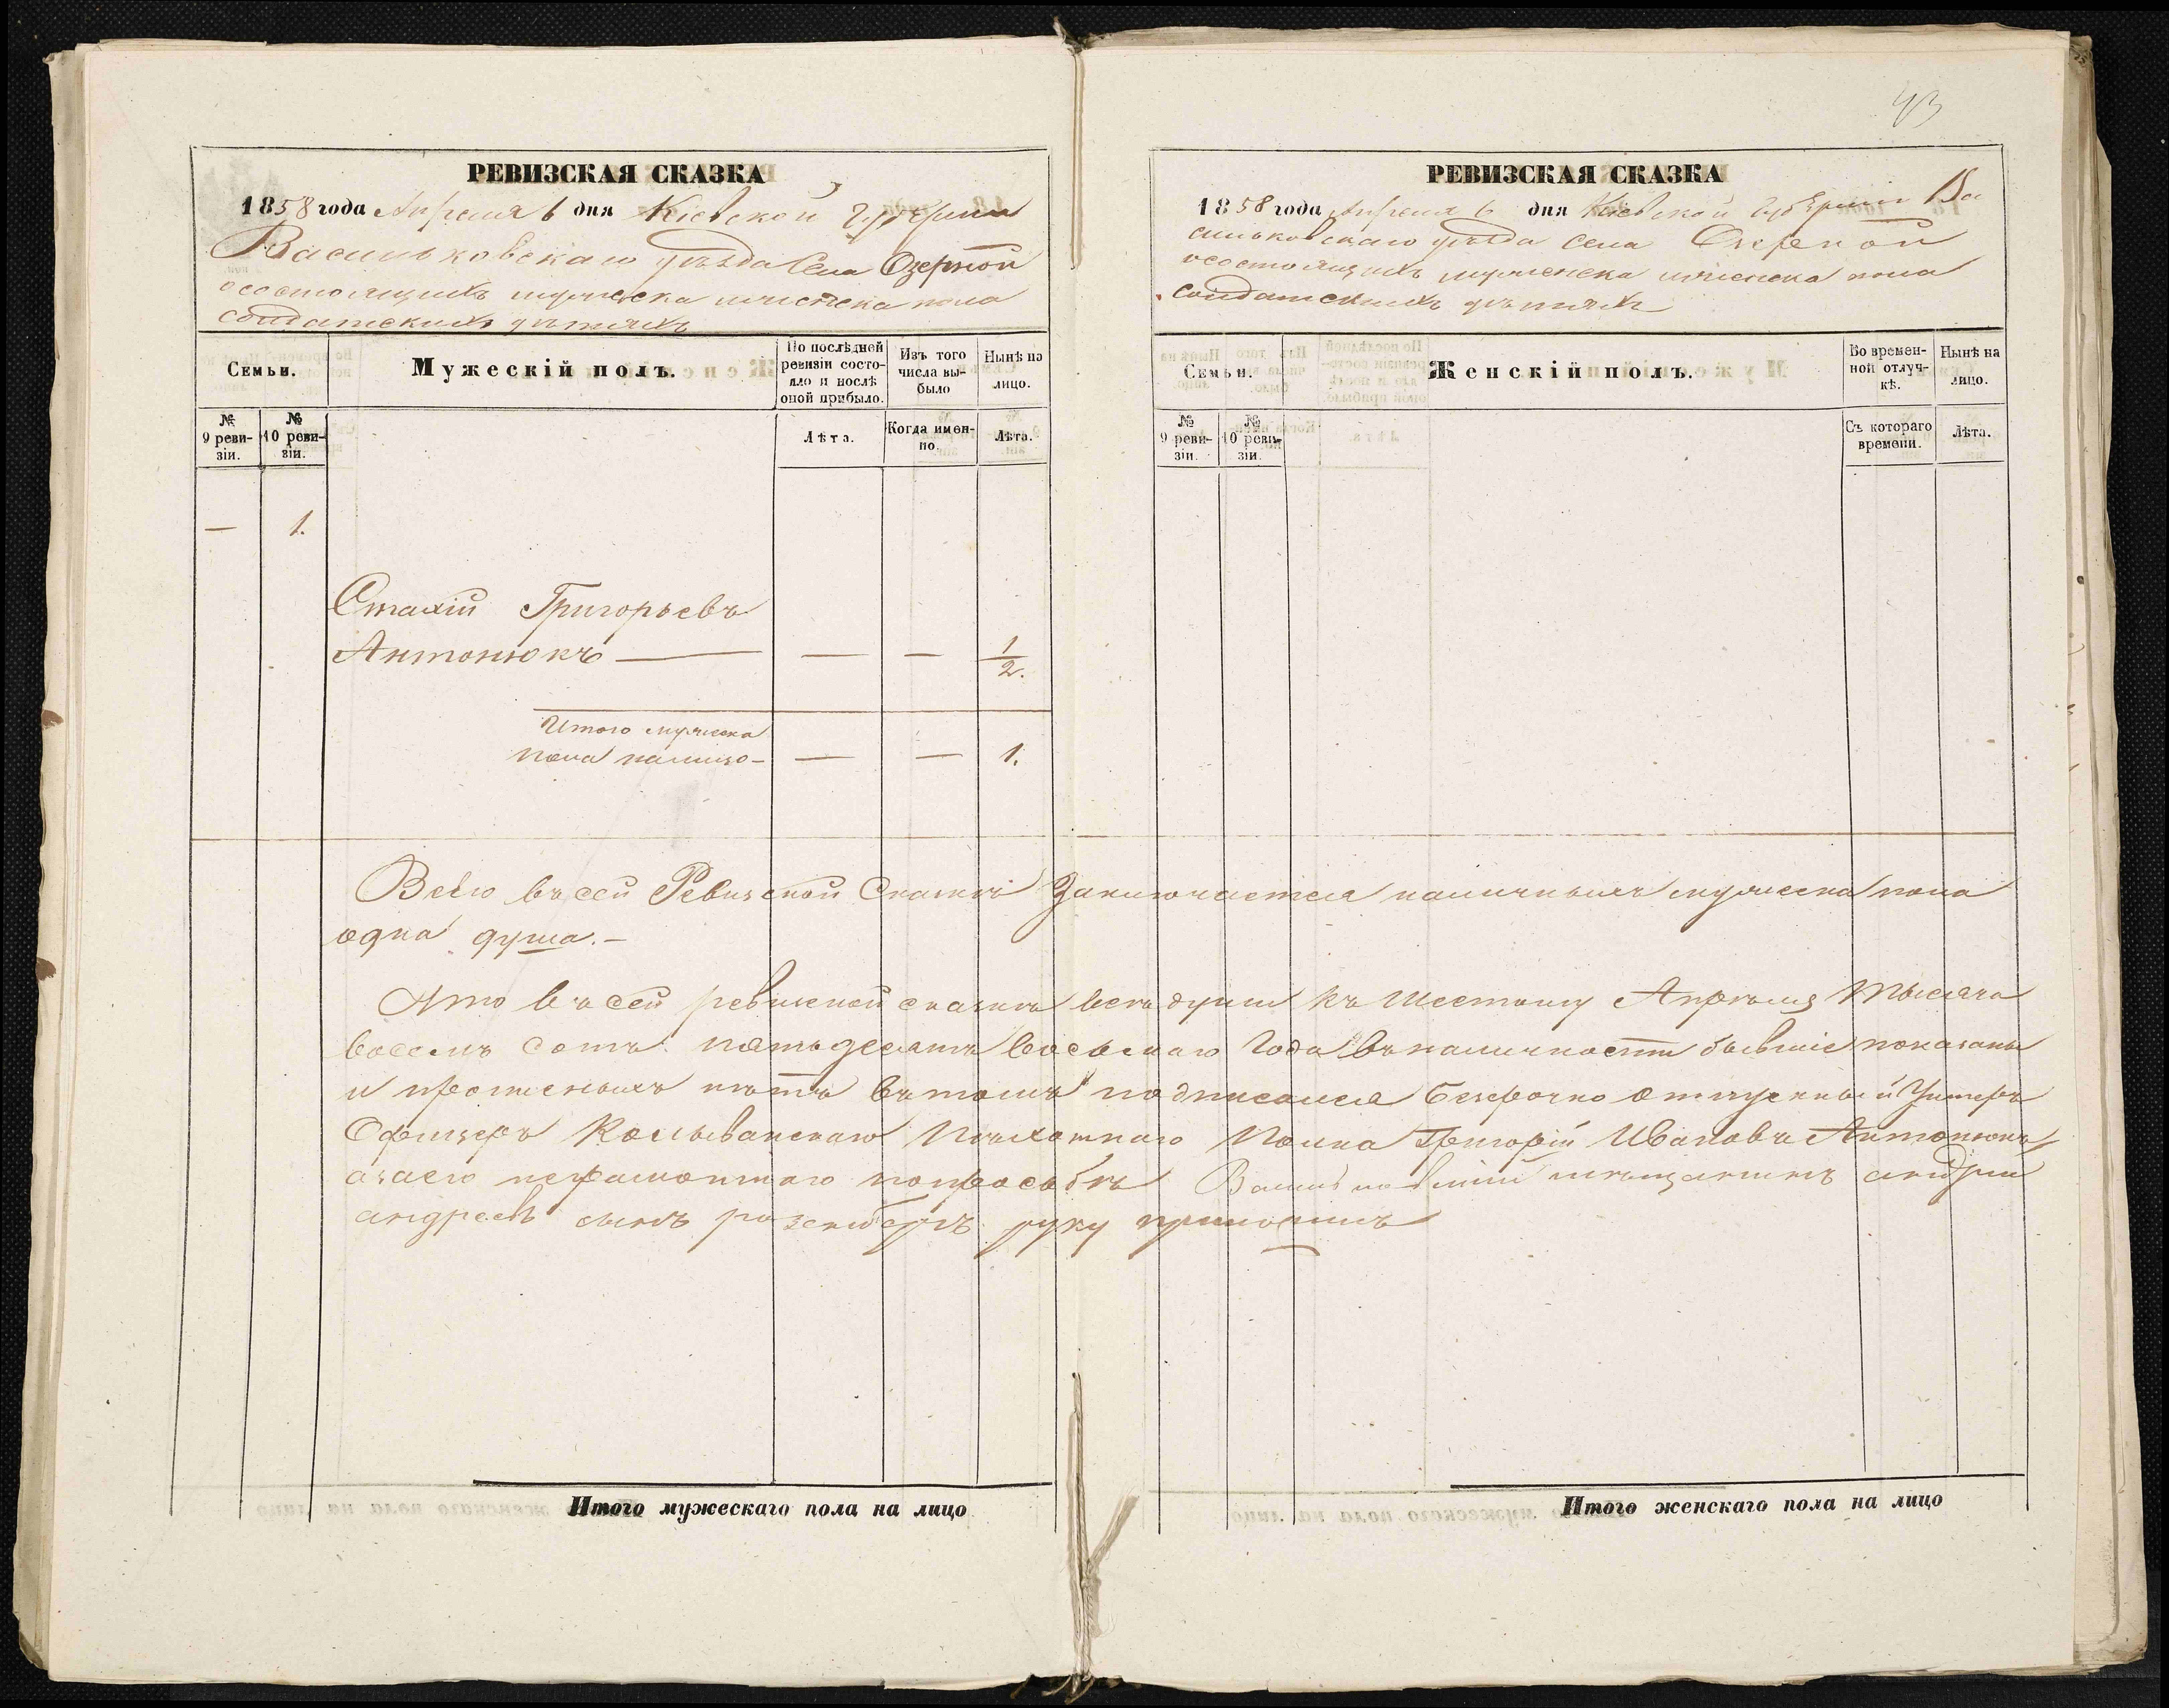 43
РЕВИЗСКАЯ СКАЗКА
1858 года Апреля 6 дня Кіевской губерніи
Васильковскаго уѣзда Села Озерной
о состоящихъ мужеска и женска пола
солдатскихъ дѣтяхъ
Семьи.
Мужескій полъ.
По послѣдней ревизіи состояло и послѣ оной прибыло.
Изъ того числа выбыло
Нынѣ на лицо.
№ 9 ревизіи.
№ 10 ревизіи.
Лѣта.
Когда именно.
Лѣта.
— 1.
Стахій Григорьевъ
Антонюкъ — — — 1/2.
Итого мужеска
пола налицо — — — 1.
РЕВИЗСКАЯ СКАЗКА
1858 года Апреля 6 дня Кіевской губерніи Ва
сильковскаго уѣзда села Озерной
о состоящихъ мужеска и женска пола
солдатскихъ дѣтяхъ
Семьи.
Женскій полъ.
Во временной отлучкѣ.
Нынѣ на лицо.
№ 9 ревизіи.
№ 10 ревизіи.
Съ котораго времени.
Лѣта.
Всего въ сей Ревизской Сказкѣ Заключается наличныхъ мужеска пола
одна душа. —
Что въ сей ревизской сказкѣ всѣ души къ шестому Апрѣля тысяча
восемь сотъ пятьдесятъ восьмаго Года въ наличности бывшіе показаны
и прописныхъ нѣтъ въ томъ подписался Безсрочно отпускный Унтеръ
Офицеръ Колыванскаго Пѣхотнаго Полка Григорій Ивановъ Антонюкъ
а за его неграмотнаго по просьбѣ мѣщанинъ андрей
андреевъ сынъ руку приложилъ
Итого мужескаго пола на лицо
Итого женскаго пола на лицо